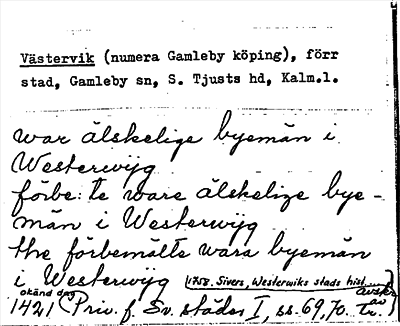 Västervik (numera Gamleby köping), förr
stad, Gamleby sn, S. Tjusts hd, Kalm.l.
war älskelige byemän i
Westerwijg
förbe:te ware älskelige bye-
män i Westerwijg
the förbemälte wara byemän
i Westerwijg (1758. Sivers, Westerwiks stads hist.)
okänd dag avskr.
1421 (Priv. f. Sv. städer I, ss. 69, 70. av tr.)